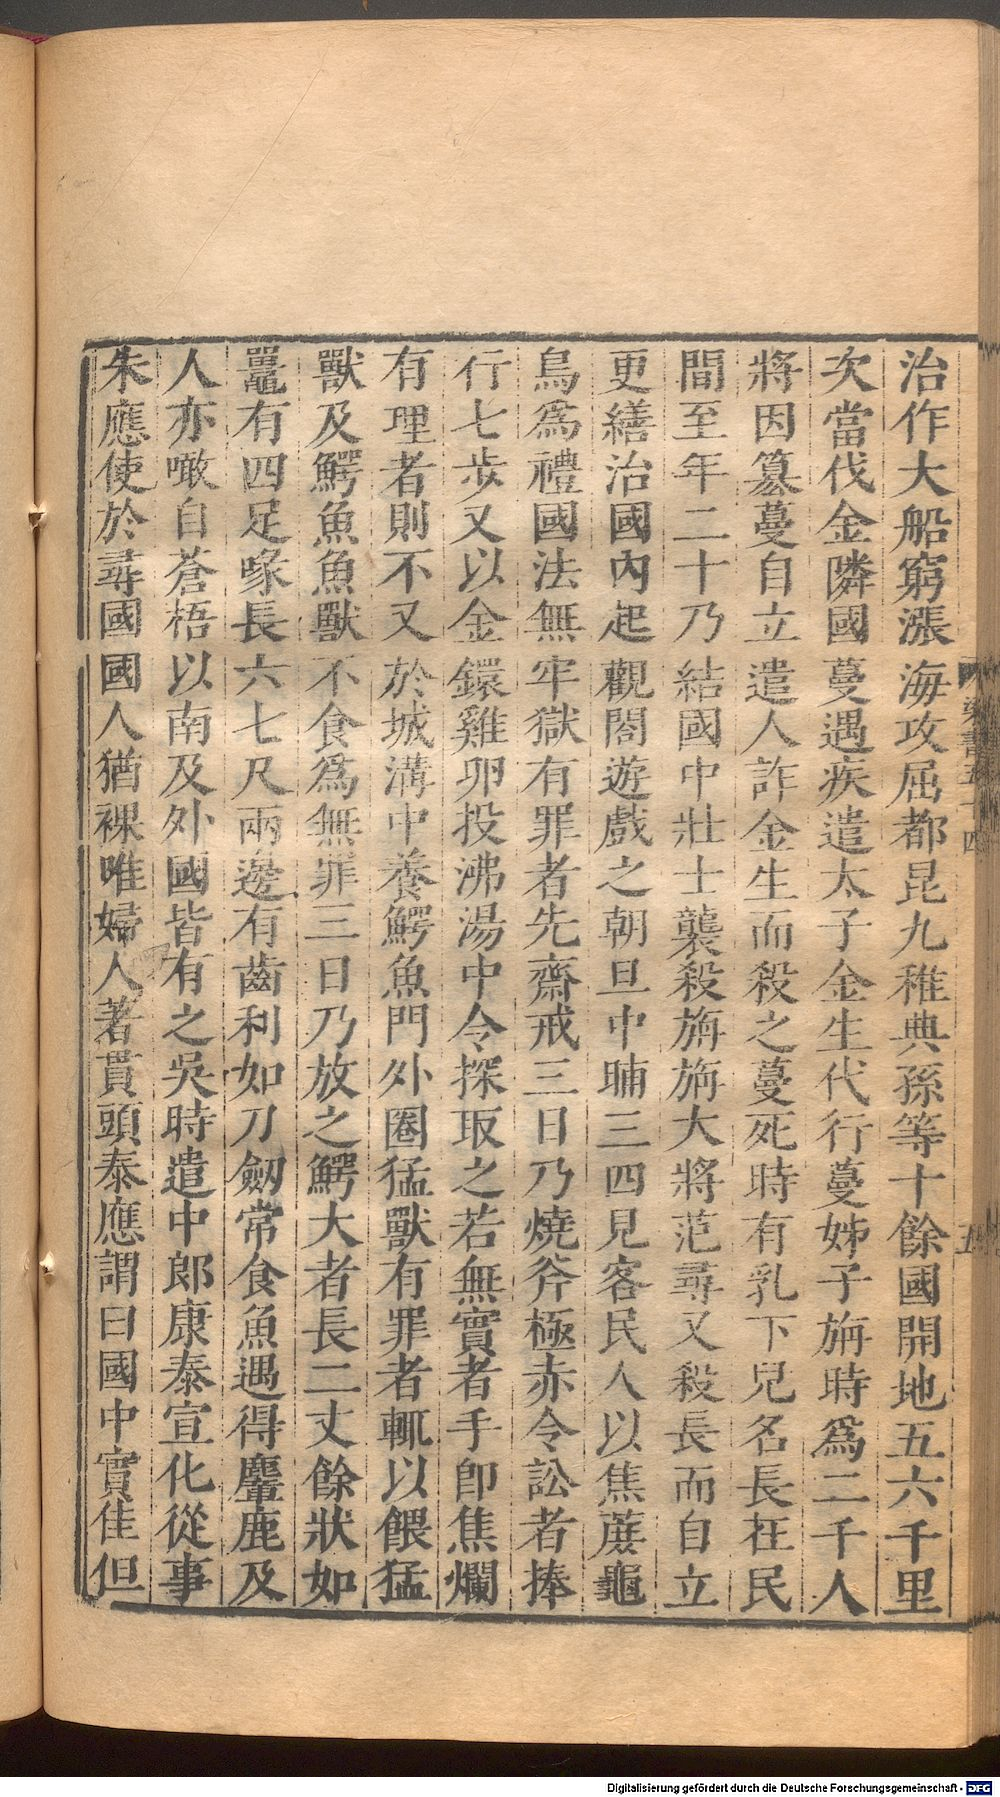 治作大船窮漲海攻屈都昆九稚典孫等十餘國開地五六千里
次當伐金隣國蔓遇疾遣太子金生代行蔓姊子旃時爲二千人
將因篡蔓自立遣人詐金生而殺之蔓死時有乳下兒名長在民
間至年二十乃結國中壯士襲殺旃旃大將范尋又殺長而自立
更繕治國內起觀閣遊戲之朝旦中晡三四見客民人以焦蔗龜
鳥爲禮國法無牢獄有罪者先齋戒三日乃燒斧極赤令訟者捧
行七步又以金鐶雞卵投沸湯中令探取之若無實者手卽焦爛
有理者則不又於城溝中養鰐魚門外圈猛獸有罪者輒以餵猛
獸及鰐魚魚獸不食爲無罪三日乃放之鰐大者長二丈餘狀如
鼉有四足喙長六七尺兩邊有齒利如刀劒常食魚遇得麞鹿及
人亦噉自蒼梧以南及外國皆有之吳時遣中郎康泰宣化從事
朱應使於尋國國人猶裸唯婦人著貫頭泰應謂曰國中實佳但
梁書五十四
五
Digitalisierung gefördert durch die Deutsche Forschungsgemeinschaft - DFG